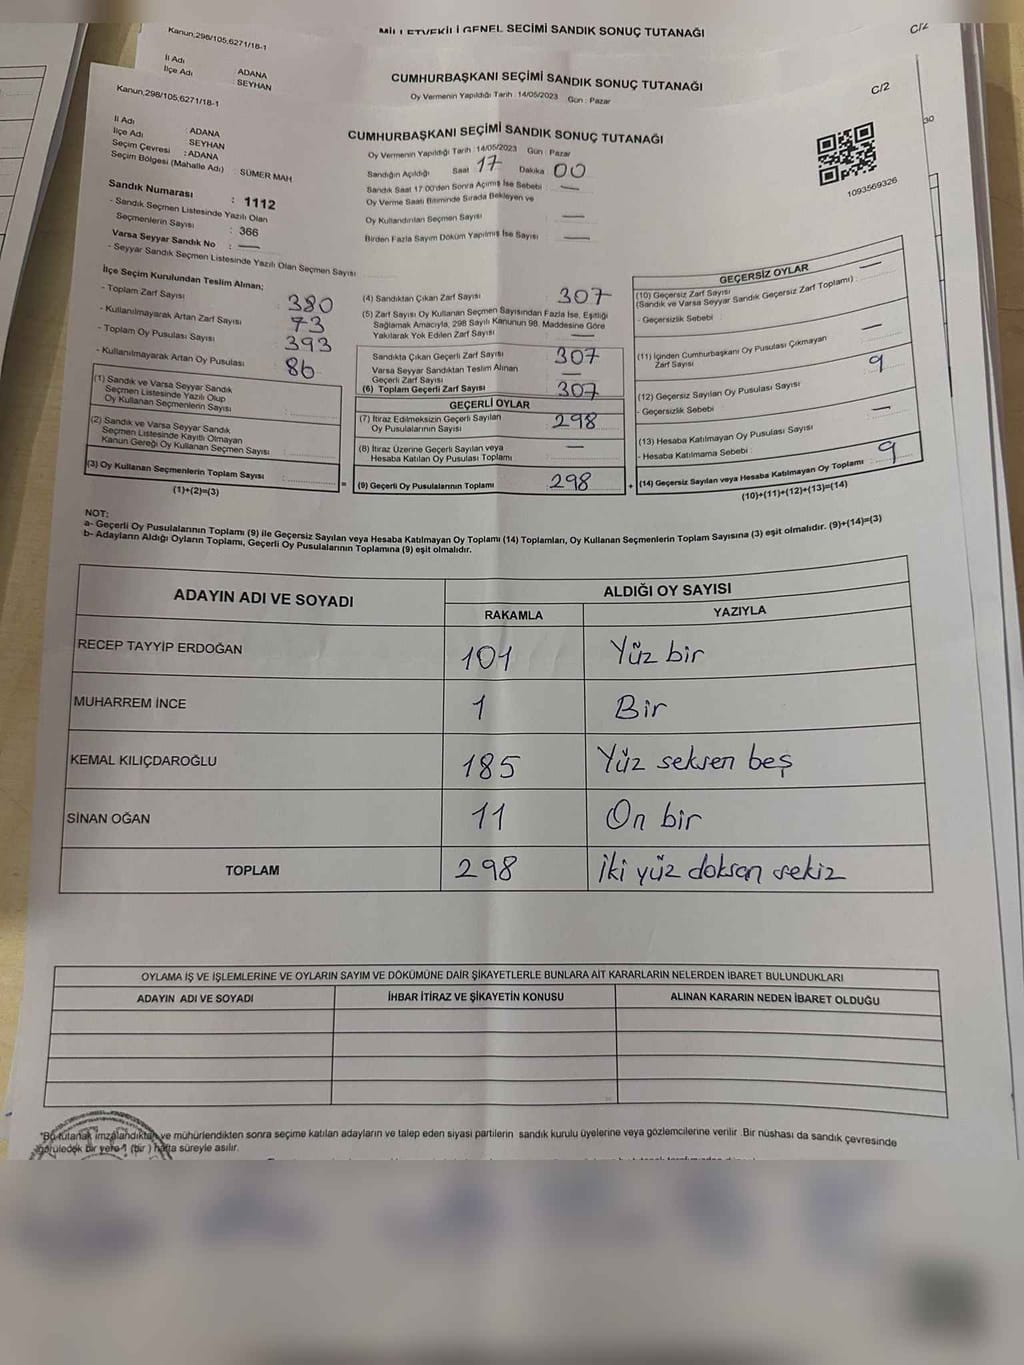 MİLLETVEKİLİ GENEL SEÇİMİ SANDIK SONUÇ TUTANAĞI
C/2
Kanun,298/105;6271/18-1
İl Adı
ADANA
İlçe Adı
: SEYHAN
CUMHURBAŞKANI SEÇİMİ SANDIK SONUÇ TUTANAĞI
Oy Vermenin Yapıldığı Tarih : 14/05/2023 Gün : Pazar
C/2
Kanun,298/105;6271/18-1
İl Adı : ADANA
İlçe Adı : SEYHAN
Seçim Çevresi : ADANA
Seçim Bölgesi (Mahalle Adı) : SÜMER MAH
Sandık Numarası : 1112
- Sandık Seçmen Listesinde Yazılı Olan
Seçmenlerin Sayısı : 366
Varsa Seyyar Sandık No : —
- Seyyar Sandık Seçmen Listesinde Yazılı Olan Seçmen Sayısı
CUMHURBAŞKANI SEÇİMİ SANDIK SONUÇ TUTANAĞI
Oy Vermenin Yapıldığı Tarih : 14/05/2023 Gün : Pazar
Sandığın Açıldığı Saat 17 Dakika 00
Sandık Saat 17:00'den Sonra Açılmış İse Sebebi : —
Oy Verme Saati Bitiminde Sırada Bekleyen ve
Oy Kullandırılan Seçmen Sayısı —
Birden Fazla Sayım Döküm Yapılmış İse Sayısı —
1093569326
30
İlçe Seçim Kurulundan Teslim Alınan;
- Toplam Zarf Sayısı 380
- Kullanılmayarak Artan Zarf Sayısı 73
- Toplam Oy Pusulası Sayısı 393
- Kullanılmayarak Artan Oy Pusulası 86
(1) Sandık ve Varsa Seyyar Sandık
Seçmen Listesinde Yazılı Olup
Oy Kullanan Seçmenlerin Sayısı :
(2) Sandık ve Varsa Seyyar Sandık
Seçmen Listesinde Kayıtlı Olmayan
Kanun Gereği Oy Kullanan Seçmen Sayısı :
(3) Oy Kullanan Seçmenlerin Toplam Sayısı :
(1)+(2)=(3)
(4) Sandıktan Çıkan Zarf Sayısı 307
(5) Zarf Sayısı Oy Kullanan Seçmen Sayısından Fazla İse, Eşitliği
Sağlamak Amacıyla, 298 Sayılı Kanunun 98. Maddesine Göre
Yakılarak Yok Edilen Zarf Sayısı —
Sandıkta Çıkan Geçerli Zarf Sayısı 307
Varsa Seyyar Sandıktan Teslim Alınan
Geçerli Zarf Sayısı —
(6) Toplam Geçerli Zarf Sayısı 307
GEÇERLİ OYLAR
(7) İtiraz Edilmeksizin Geçerli Sayılan
Oy Pusulalarının Sayısı : 298
(8) İtiraz Üzerine Geçerli Sayılan veya
Hesaba Katılan Oy Pusulası Toplamı : —
= (9) Geçerli Oy Pusulalarının Toplamı 298
GEÇERSİZ OYLAR
(10) Geçersiz Zarf Sayısı
(Sandık ve Varsa Seyyar Sandık Geçersiz Zarf Toplamı) : —
- Geçersizlik Sebebi :
(11) İçinden Cumhurbaşkanı Oy Pusulası Çıkmayan
Zarf Sayısı —
(12) Geçersiz Sayılan Oy Pusulası Sayısı 9
- Geçersizlik Sebebi :
(13) Hesaba Katılmayan Oy Pusulası Sayısı —
- Hesaba Katılmama Sebebi :
+ (14) Geçersiz Sayılan veya Hesaba Katılmayan Oy Toplamı 9
(10)+(11)+(12)+(13)=(14)
NOT:
a- Geçerli Oy Pusulalarının Toplamı (9) ile Geçersiz Sayılan veya Hesaba Katılmayan Oy Toplamı (14) Toplamları, Oy Kullanan Seçmenlerin Toplam Sayısına (3) eşit olmalıdır. (9)+(14)=(3)
b- Adayların Aldığı Oyların Toplamı, Geçerli Oy Pusulalarının Toplamına (9) eşit olmalıdır.
ADAYIN ADI VE SOYADI
ALDIĞI OY SAYISI
RAKAMLA YAZIYLA
RECEP TAYYİP ERDOĞAN 101 Yüz bir
MUHARREM İNCE 1 Bir
KEMAL KILIÇDAROĞLU 185 Yüz seksen beş
SİNAN OĞAN 11 On bir
TOPLAM 298 İki yüz doksan sekiz
OYLAMA İŞ VE İŞLEMLERİNE VE OYLARIN SAYIM VE DÖKÜMÜNE DAİR ŞİKAYETLERLE BUNLARA AİT KARARLARIN NELERDEN İBARET BULUNDUKLARI
ADAYIN ADI VE SOYADI İHBAR İTİRAZ VE ŞİKAYETİN KONUSU ALINAN KARARIN NEDEN İBARET OLDUĞU
*Bu tutanak imzalandıktan ve mühürlendikten sonra seçime katılan adayların ve talep eden siyasi partilerin sandık kurulu üyelerine veya gözlemcilerine verilir. Bir nüshası da sandık çevresinde
görülecek bir yere 1 (bir) hafta süreyle asılır.